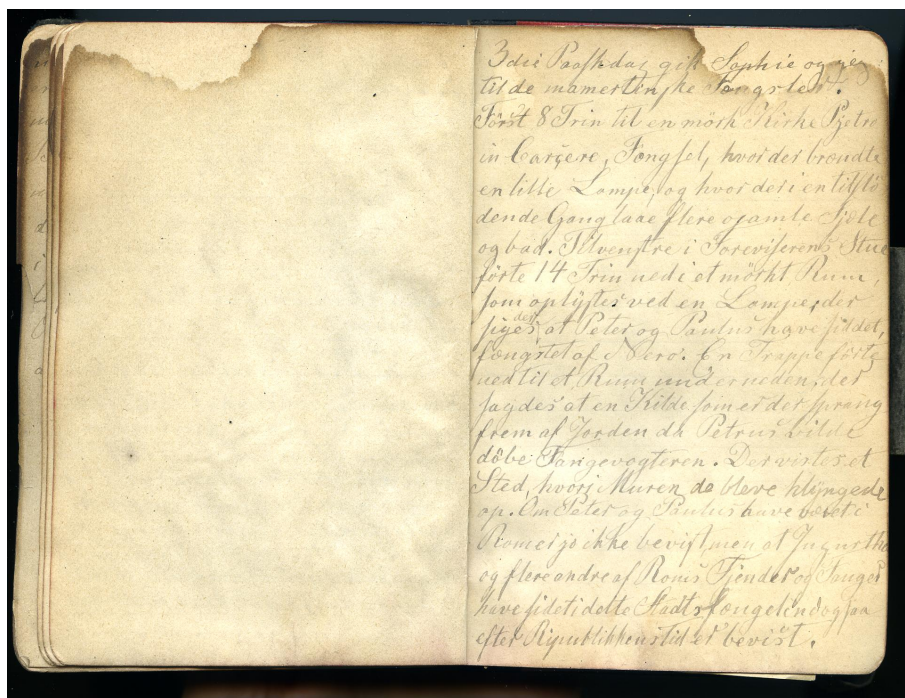 3die Paaskdag gik Sophie og jeg
til de mamertinske Fængsler.
Først 8 Trin til en mörk Kirke Pjetro
in Carçere, Fængsel, hvor der brændte
en lille Lampe, og hvor der i en tilstö
dende Gang laae flere gamle Sjæle
og bad. Tilvenstre i Foreviserens Stue
förte 14 Trin ned i et mörkt Rum,
som oplystes ved en Lampe, der
siges, at Peter og Paulus have siddet,
der
fængslet af Nero. En Trappe förte
ned til et Rum underneden, der
sagdes at en Kilde som er der sprang
frem af Jorden da Petrus vilde
döbe Fangevogteren. Der vistes et
Sted, hvor i Muren de bleve klyngede
op. Om Peter og Paulus have været i
Rom er jo ikke bevist, men at Jugurtha
og flere andre af Roms Fjender og Fanger
have sidet i dette Stadtsfængsel ogsaa
efter Republikkens tid er bevist.